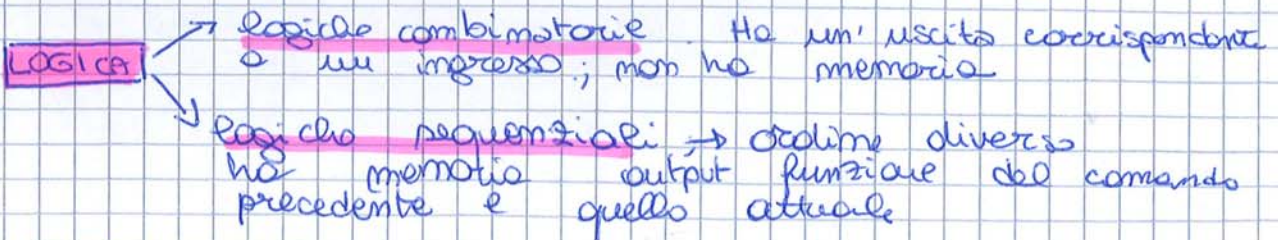 logiche combinatorie. Ha un' uscita corrispondente
LOGICA
a un ingresso; non ha memoria
logiche sequenziali; → ordine diverso
ha memoria output funzione del comando
precedente e quello attuale